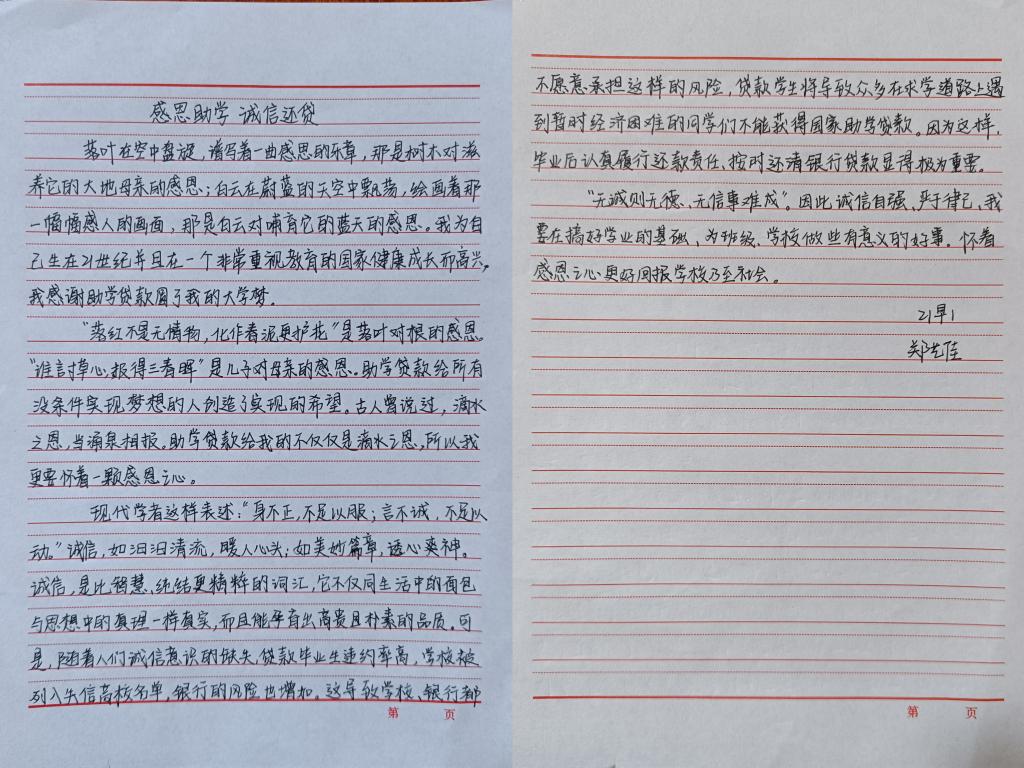 感恩助学 诚信还贷
落叶在空中盘旋，谱写着一曲感恩的乐章，那是树木对滋
养它的大地母亲的感恩；白云在蔚蓝的天空中飘荡，绘画着那
一幅幅感人的画面，那是白云对哺育它的蓝天的感恩。我为自
己生在21世纪并且在一个非常重视教育的国家健康成长而高兴，
我感谢助学贷款圆了我的大学梦。
“落红不是无情物，化作春泥更护花”是落叶对根的感恩。
“谁言寸草心，报得三春晖”是儿子对母亲的感恩。助学贷款给所有
没条件实现梦想的人创造了实现的希望。古人曾说过，滴水
之恩，当涌泉相报。助学贷款给我的不仅仅是滴水之恩，所以我
更要怀着一颗感恩之心。
现代学者这样表述：“身不正，不足以服；言不诚，不足以
动。”诚信，如汩汩清流，暖人心头；如美妙篇章，透心爽神。
诚信，是比智慧、纯结更精粹的词汇，它不仅同生活中的面包
与思想中的真理一样真实，而且能孕育出高贵且朴素的品质。可
是，随着人们诚信意识的缺失，贷款毕业生违约率高，学校被
列入失信高校名单，银行的风险也增加。这导致学校、银行都
第 页
不愿意承担这样的风险，贷款学生将导致众多在求学道路上遇
到暂时经济困难的同学们不能获得国家助学贷款。因为这样，
毕业后认真履行还款责任、按时还清银行贷款显得极为重要。
“无诚则无德、无信事难成”。因此诚信自强、严于律己，我
要在搞好学业的基础，为班级、学校做些有意义的好事。怀着
感恩之心更好回报学校乃至社会。
21早1
郑艺佳
第 页